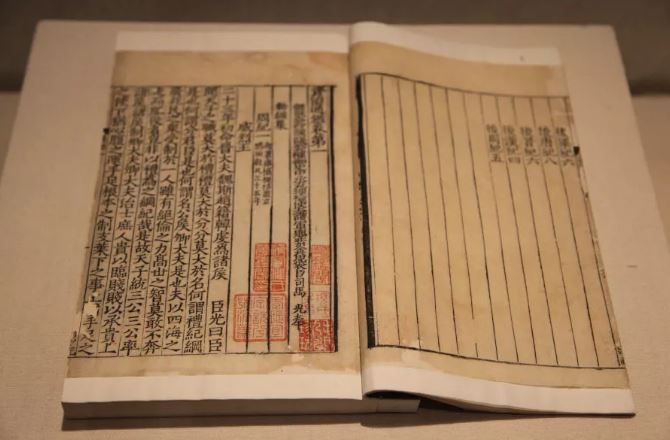 後梁紀六
後唐紀八
後晉紀六
後漢紀四
後周紀五
資治通鑑卷第一
司馬 光奉
勅編集
周紀一
威烈王
二十三年初命晉大夫魏斯趙籍韓虔爲諸侯 臣光曰臣
聞天子之職莫大於禮禮莫大於分分莫大於名何謂禮紀綱
是也何謂分君臣是也何謂名公侯卿大夫是也夫以四海之
廣兆民之衆受制於一人雖有絕倫之力高世之智莫敢不奔
走而服役者豈非以禮爲之綱紀哉是故天子統三公三公率
諸侯諸侯制卿大夫卿大夫治士庶人貴以臨賤賤以承貴上
之使下猶心腹之運手足根本之制支葉下之事上猶手足之